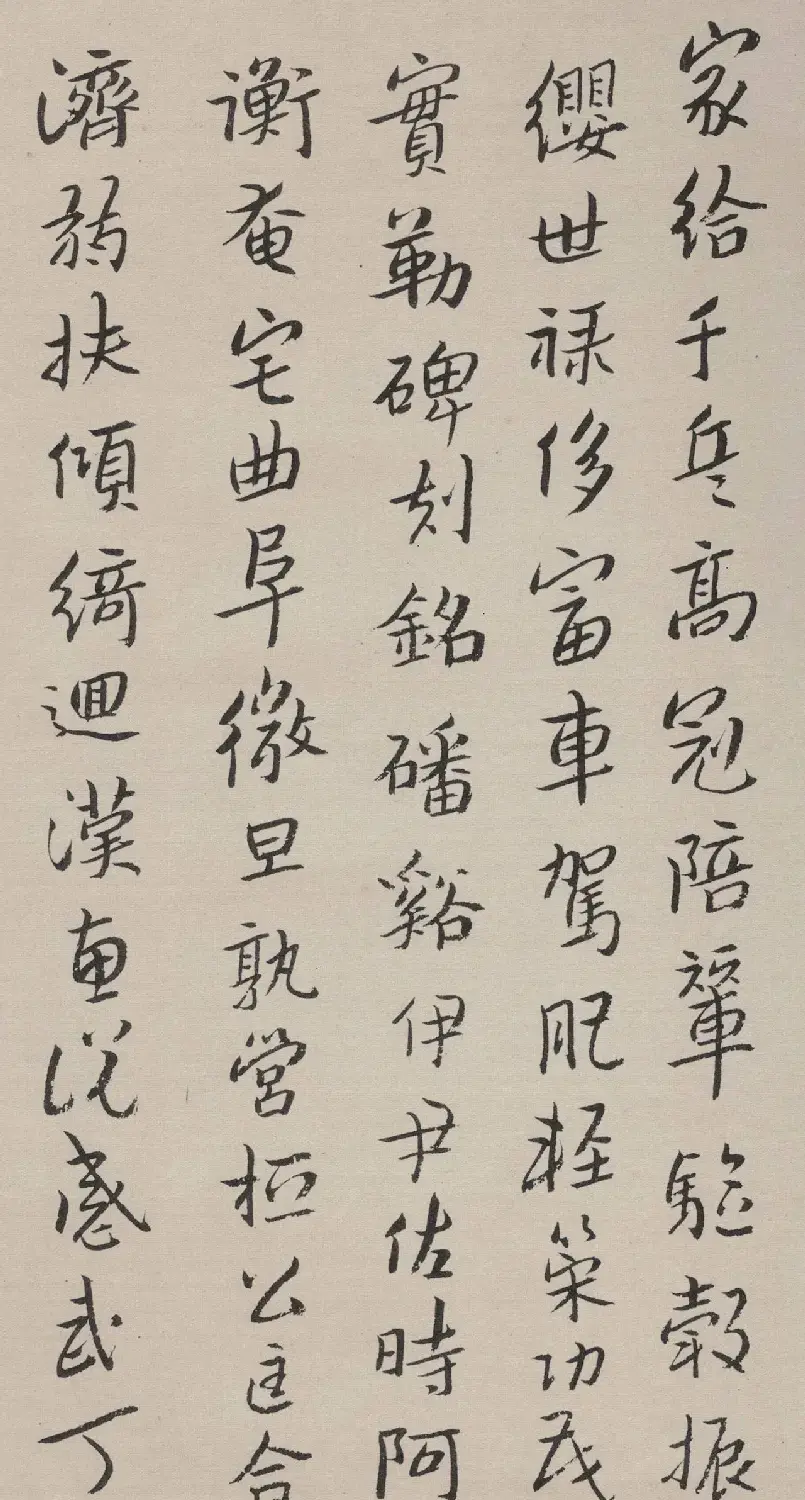 家給千兵高冠陪輦驅轂振
纓世祿侈富車駕肥輕策功茂
實勒碑刻銘磻谿伊尹佐時阿
衡奄宅曲阜微旦孰營桓公匡合
濟弱扶傾綺迴漢惠說感武丁